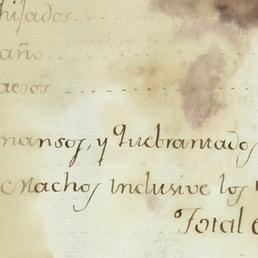 hijados
año
mansos, y Quebrantados
Machos inclusive los
Total